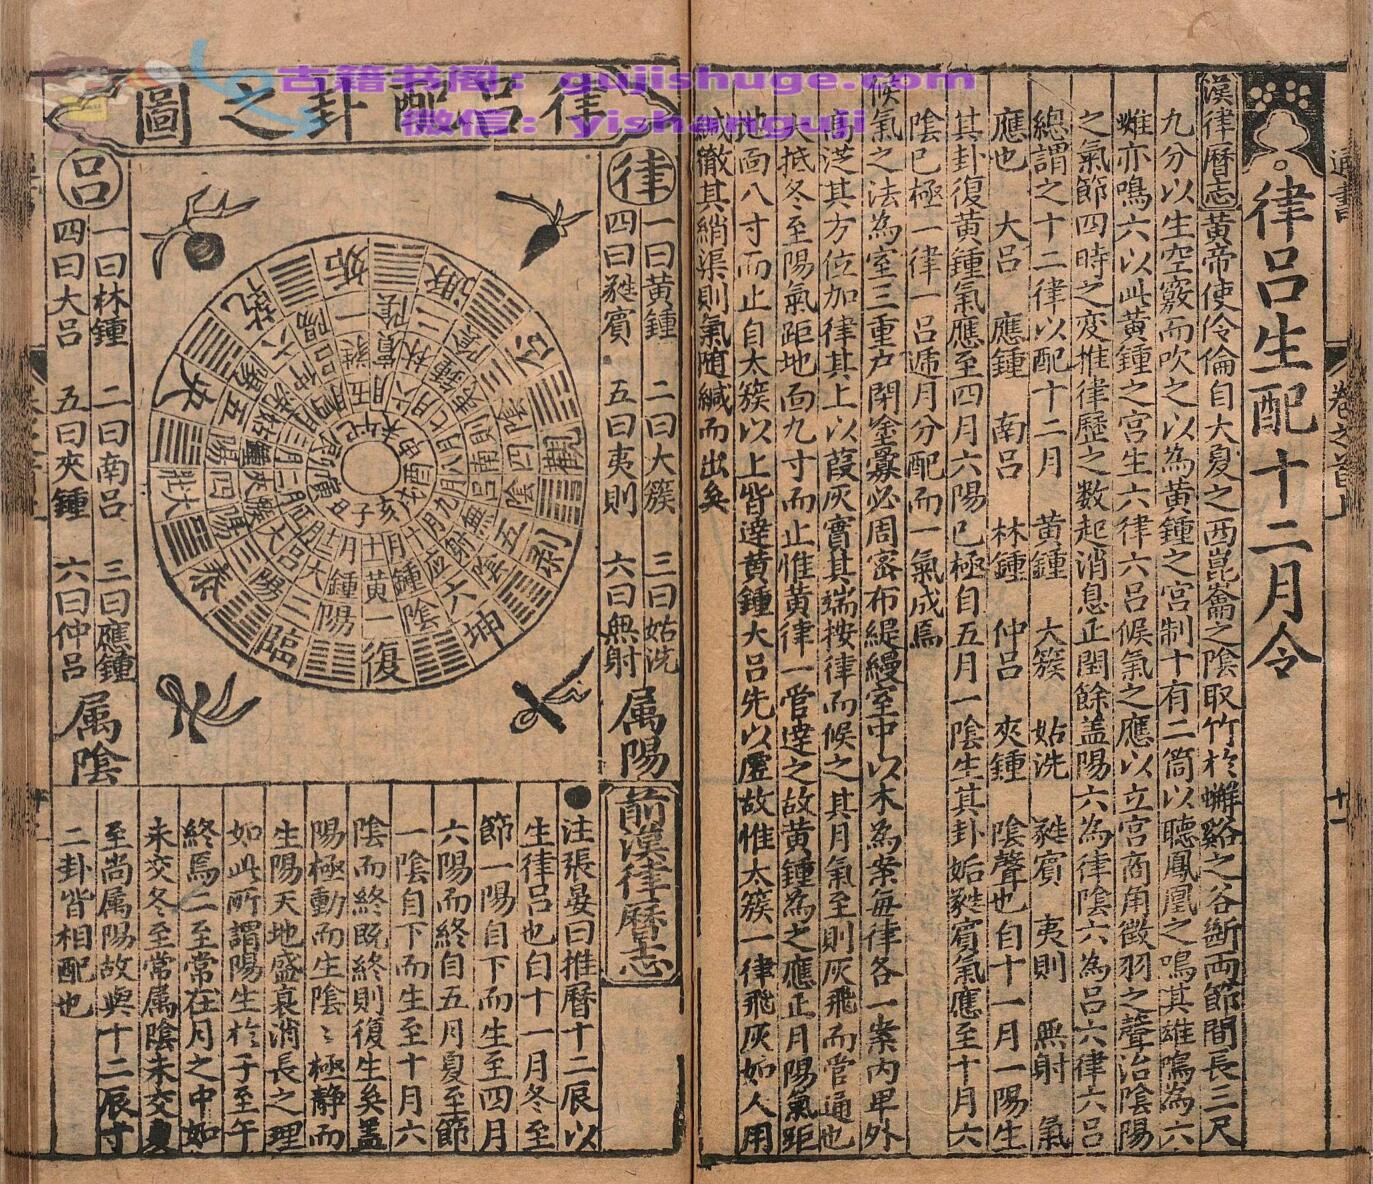 古籍书阁：gujishuge.com
微信：yishanguji
通書
卷之首
十一
律呂生配十二月令
漢律曆志黃帝使伶倫自大夏之西崑崙之陰取竹於嶰谿之谷斷兩節間長三尺
九分以生空竅而吹之以為黃鍾之宮制十有二筒以聽鳳凰之鳴其雄鳴為六
雌亦鳴六以此黃鍾之宮生六律六呂候氣之應以立宮商角徵羽之聲治陰陽
之氣節四時之变推律歷之数起消息正閏餘盖陽六為律陰六為呂六律六呂
總謂之十二律以配十二月 黃鍾 大簇 姑洗 蕤賓 夷則 無射 氣
應也 大呂 應鍾 南呂 林鍾 仲呂 夾鍾 陰聲也自十一月一陽生
其卦復黃鍾氣應至四月六陽已極自五月一陰生其卦姤蕤賓氣應至十月六
陰已極一律一呂逓月分配而一氣成焉
候氣之法為室三重户閉塗釁必周密布緹縵室中以木為案每律各一案内卑外
高從其方位加律其上以葭灰實其端按律而候之其月氣至則灰飛而管通也
大抵冬至陽氣距地面九寸而止惟黃律一管達之故黃鍾為之應正月陽氣距
地面八寸而止自太簇以上皆達黃鍾大呂先以虛故惟太簇一律飛灰如人用
緘徹其綃渠則氣随緘而出矣
律呂配卦之圖
律
一曰黃鍾 二曰大簇 三曰姑洗
四曰蕤賓 五曰夷則 六曰無射
属陽
呂
一曰林鍾 二曰南呂 三曰應鍾
四曰大呂 五曰夾鍾 六曰仲呂
属陰
復 臨 泰 大壯 夬 乾 姤 遯 否 觀 剥 坤
一陽 二陽 三陽 四陽 五陽 六陽 一陰 二陰 三陰 四陰 五陰 六陰
黃鍾 大呂 大簇 夾鍾 姑洗 仲呂 蕤賓 林鍾 夷則 南呂 無射 應鍾
十一月 十二月 正月 二月 三月 四月 五月 六月 七月 八月 九月 十月
子 丑 寅 卯 辰 巳 午 未 申 酉 戌 亥
前漢律曆志
●注張晏曰推曆十二辰以
生律呂也自十一月冬至
節一陽自下而生至四月
六陽而終自五月夏至節
一陰自下而生至十月六
陰而終既終則復生矣盖
陽極動而生陰〻極静而
生陽天地盛衰消長之理
如此所謂陽生於子至午
終焉二至常在月之中如
未交冬至常属陰未交夏
至尚属陽故與十二辰寸
二卦皆相配也